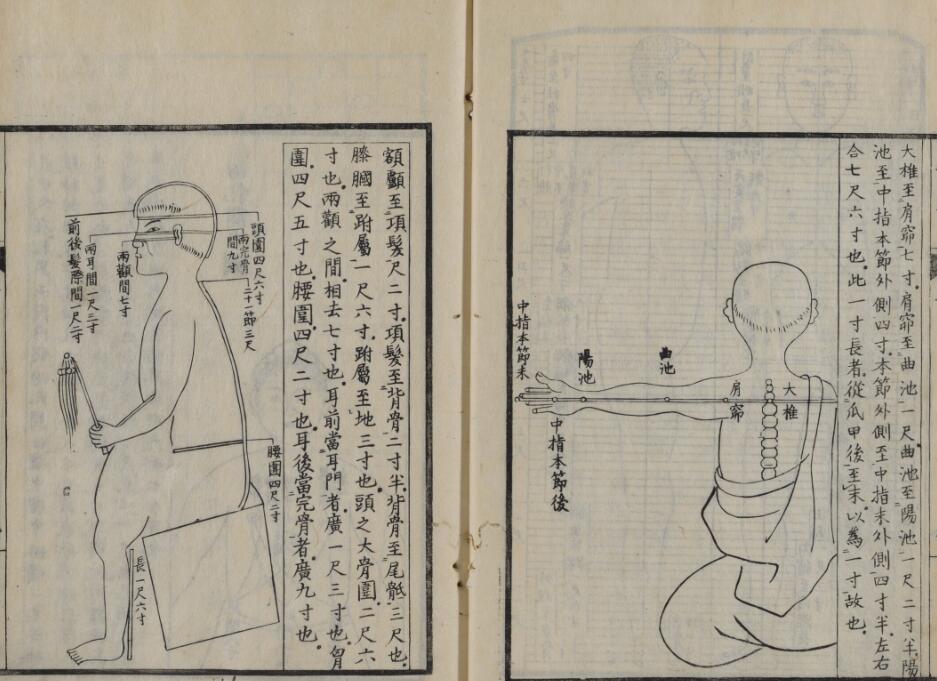 大椎至肩窌七寸肩窌至曲池一尺曲池至陽池一尺二寸半陽
池至中指本節外側四寸本節外側至中指末外側四寸半左右
合七尺六寸也此一寸長者從爪甲後至末以為一寸故也
大椎
肩窌
曲池
陽池
中指本節末
中指本節後
額顱至項髮尺二寸項髮至背骨二寸半背骨至尾骶三尺也
膝膕至跗屬一尺六寸跗屬至地三寸也頭之大骨圍二尺六
寸也兩顴之間相去七寸也耳前當耳門者廣一尺三寸也胷
圍四尺五寸也腰圍四尺二寸也耳後當完骨者廣九寸也
頭圍四尺六寸
兩完骨間九寸
二十一節三尺
兩顴間七寸
兩耳間一尺三寸
前後髮際間一尺二寸
腰圍四尺二寸
長一尺六寸